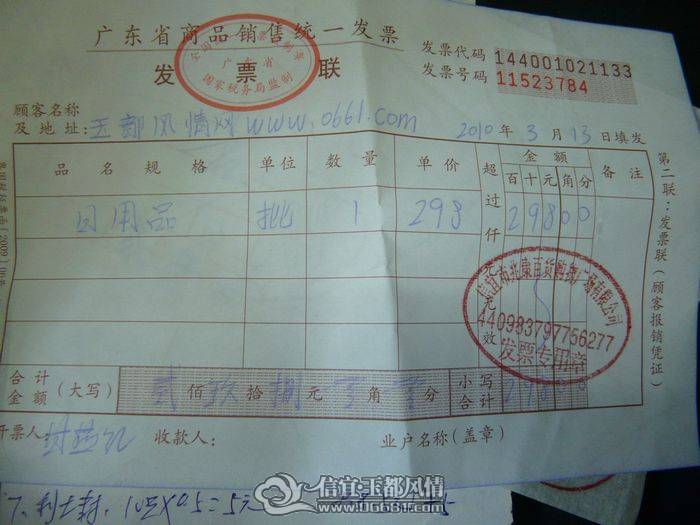 广东省商品销售统一发票
发票联
广东省
国家税务局监制
发票代码 144001021133
发票号码 11523784
顾客名称
及地址: 玉都风情网www.0661.com 2010年3月13日填发
品名规格 单位 数量 单价 超过仟元无效 金额 备注
百十元角分
日用品 批 1 298 29800
合计金额 (大写) 贰佰玖拾捌元零角零分 小写合计
开票人: 收款人: 业户名称(盖章)
第二联:发票联(顾客报销凭证)
440983797756277
发票专用章
信宜玉都风情
www.06681.com